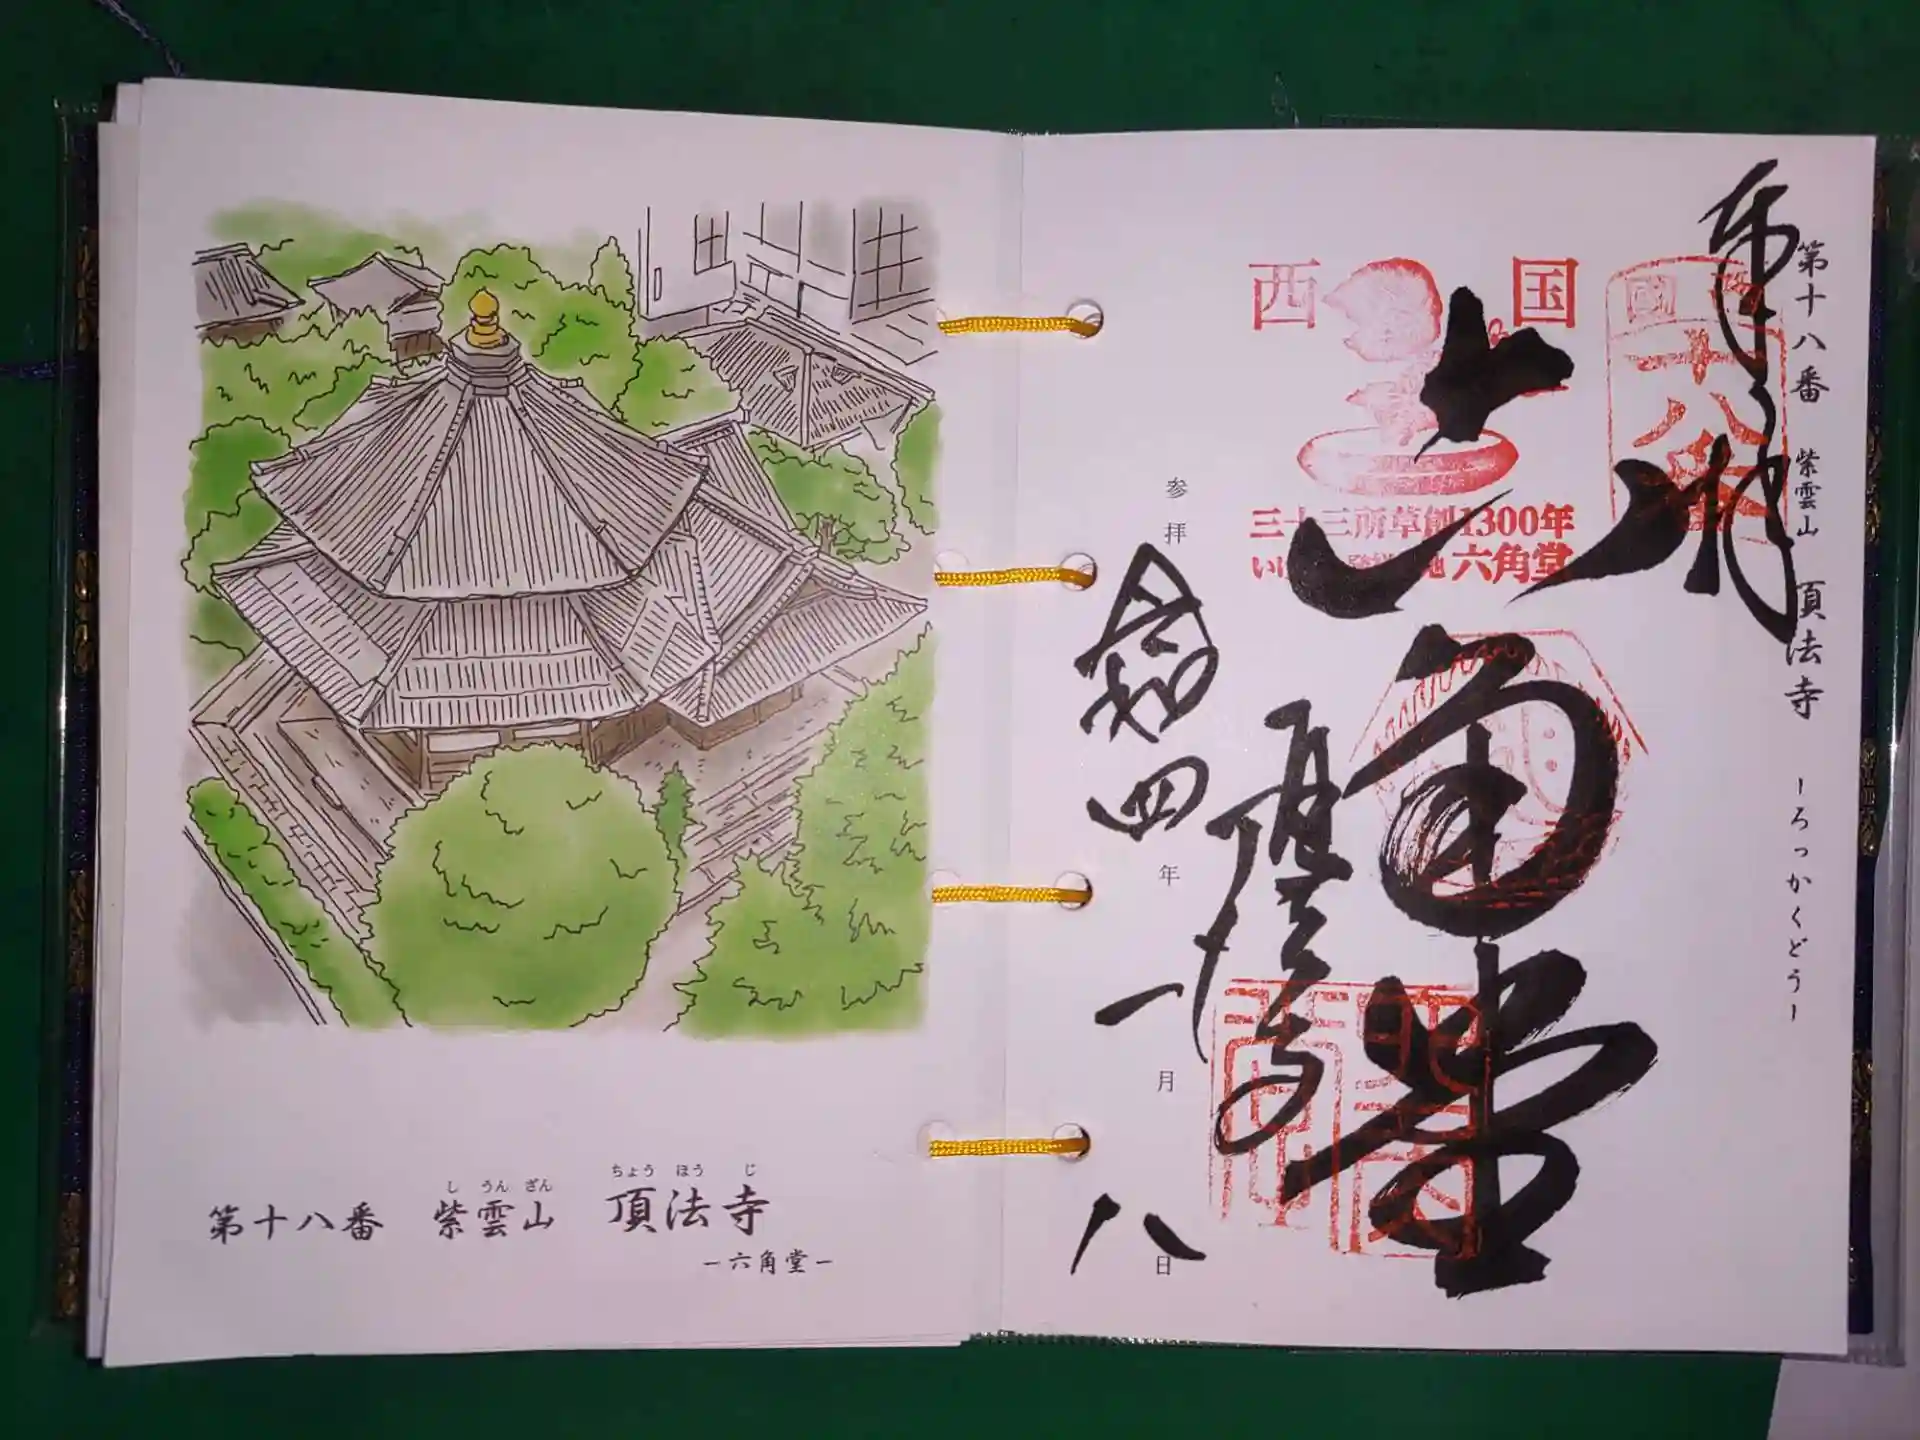 第十八番 紫雲山 頂法寺
し うん ざん ちょう ほう じ
ー六角堂ー
第十八番 紫雲山 頂法寺 ーろっかくどうー
奉拝
西国
十八番
三十三所草創1300年
六角堂
六角堂
頂法寺
参拝
令和四年一月八日